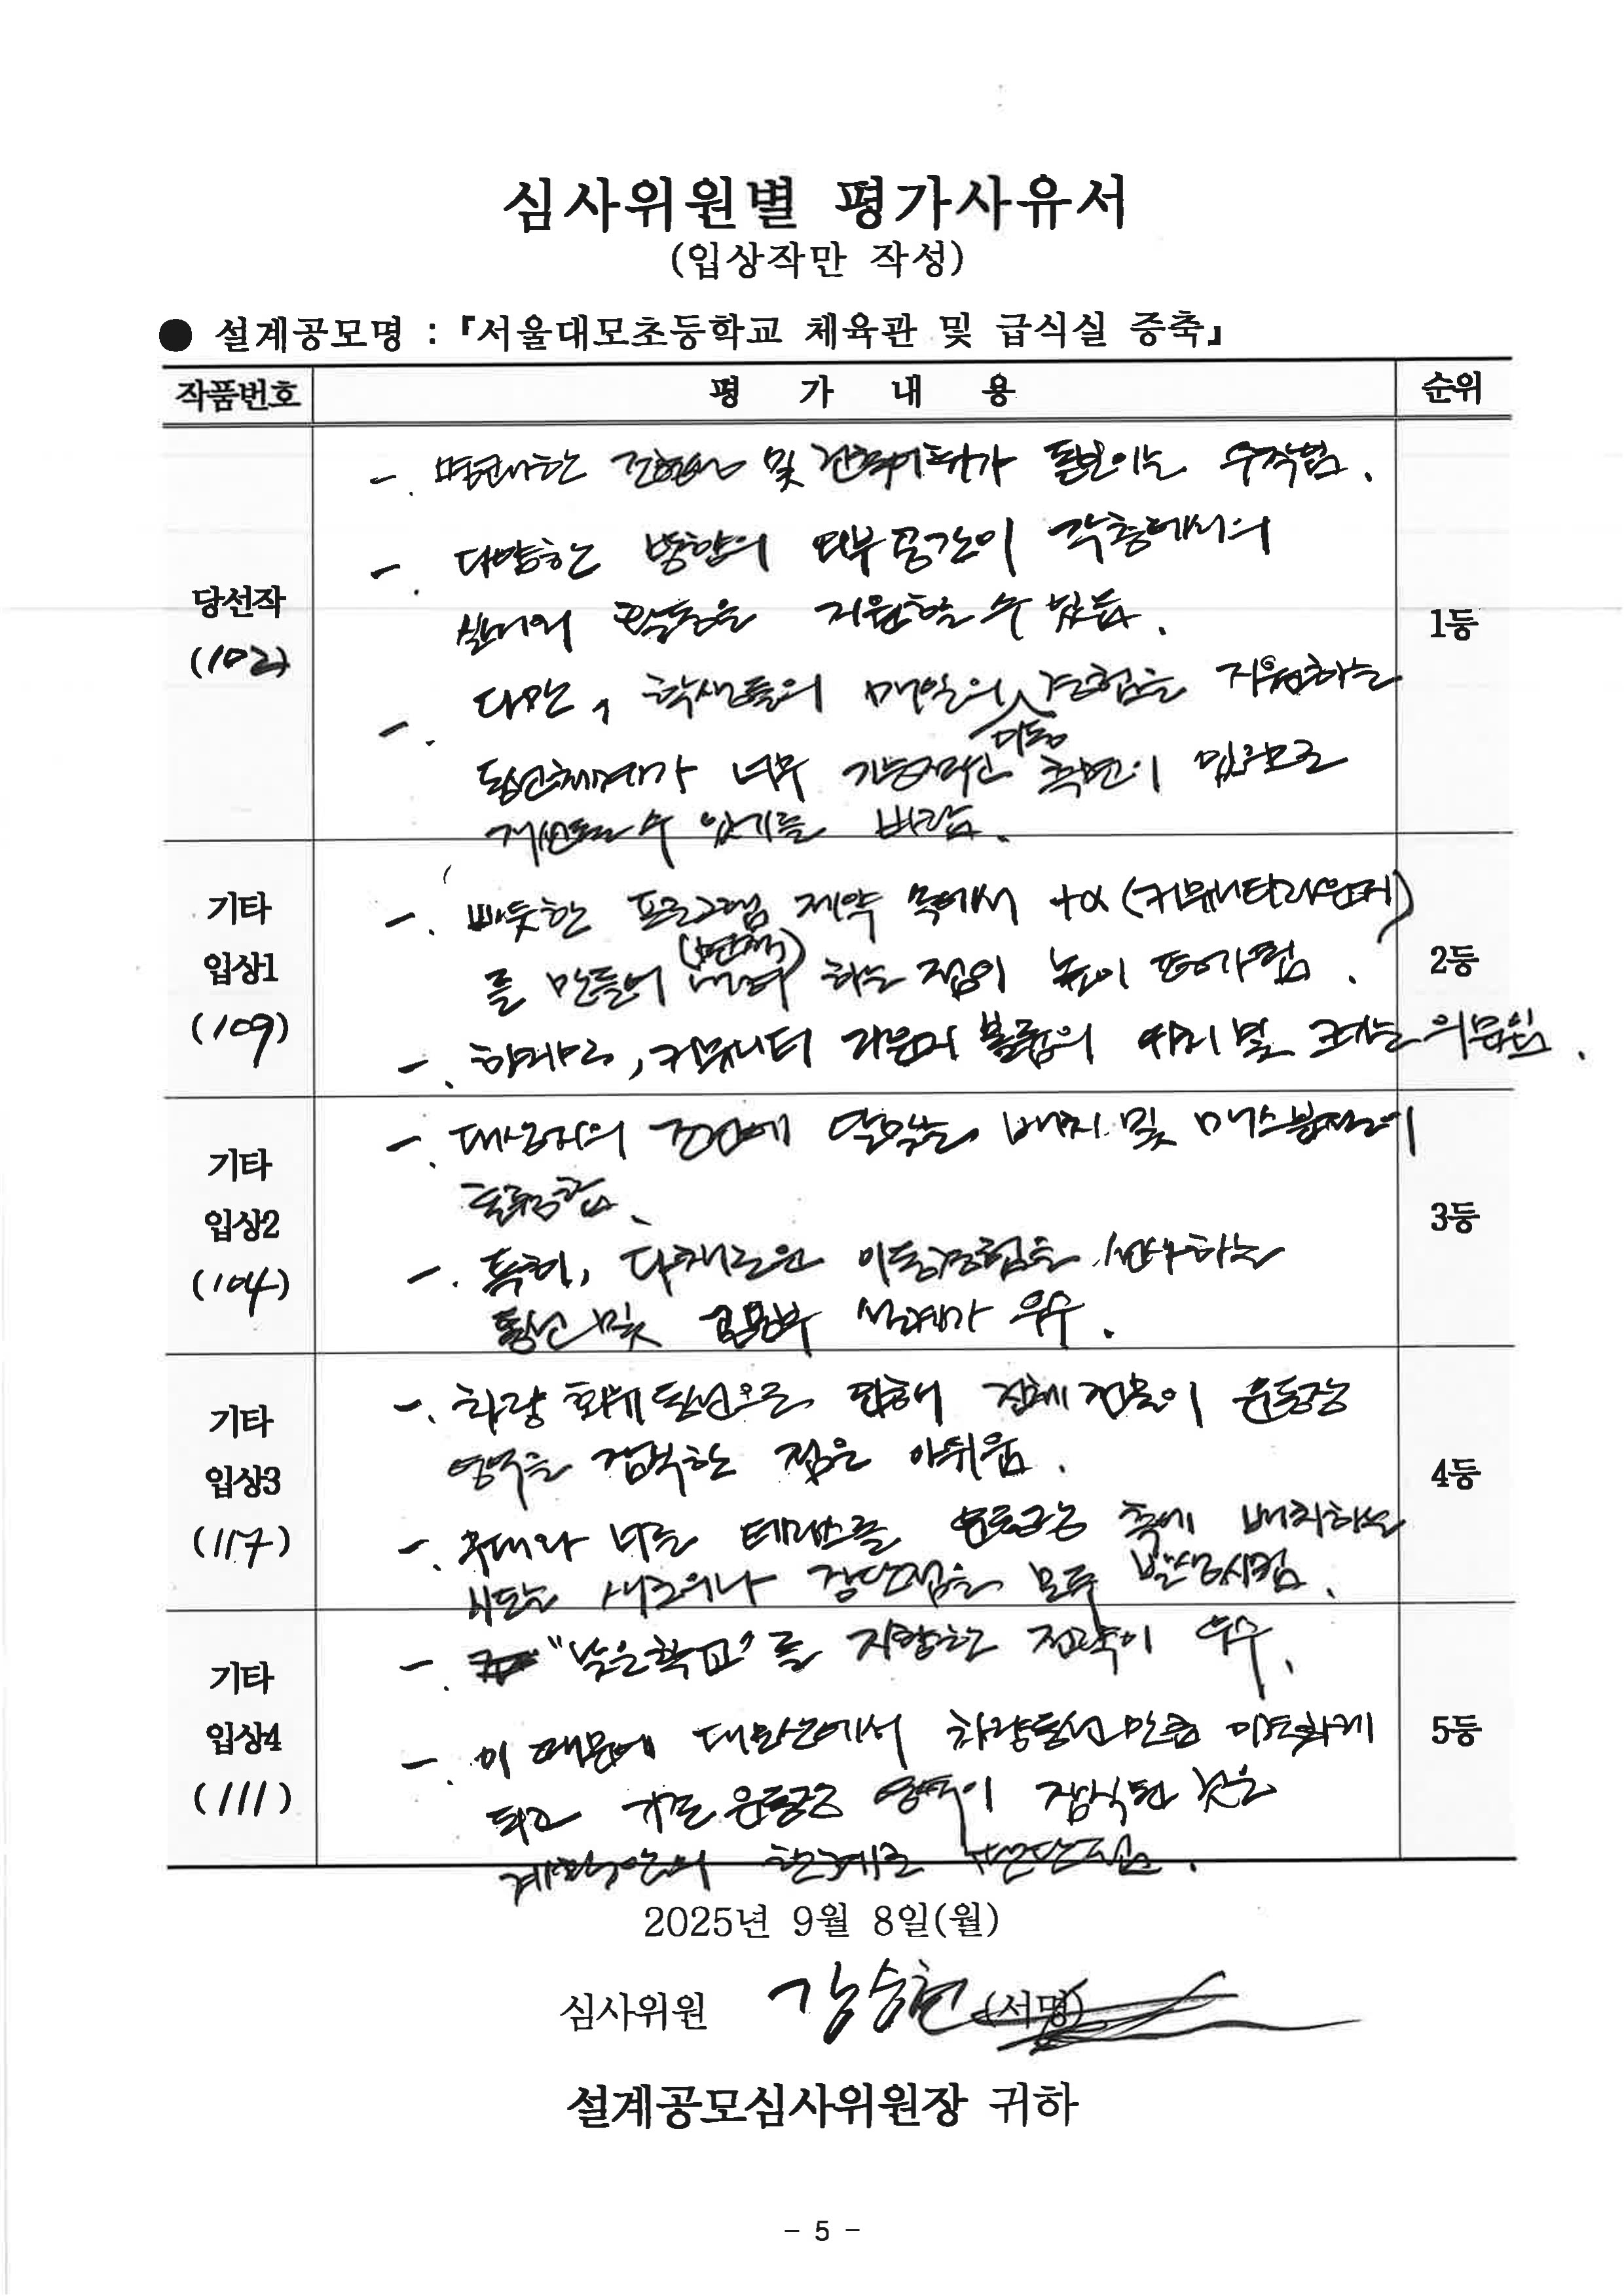 심사위원별 평가사유서
(입상작만 작성)
● 설계공모명 : 『서울대모초등학교 체육관 및 급식실 증축』
작품번호 평 가 내 용 순위
당선작
(102)
1등
-. 명쾌한 및 건축어휘가 돋보이는 수작임.
-. 다양한 방향의 외부공간이 각층에서의
실내외 활동을 지원할 수 있음.
-. 다만, 학생들의 매일의 이동 경험을 지원하는
동선체계가 너무 기능적인 측면이 있으므로
개선될 수 있기를 바람.
기타
입상1
(109)
2등
-. 빠듯한 프로그램 제약 속에서 +α (커뮤니티라운지)
를 만들어 (면적) 하는 점이 높이 평가됨.
-. 하지만, 커뮤니티 라운지 볼륨의 위치 및 크기는 의문임.
기타
입상2
(104)
3등
-. 대상지의 조건에 알맞는 배치 및 매스분절이
훌륭함.
-. 특히, 다채로운 이동경험을 선사하는
동선 및 공용부 설계가 우수.
기타
입상3
(117)
4등
-. 차량 회차동선으로 인해 전체 건물이 운동장
영역을 잠식한 점은 아쉬움.
-. 무대와 너른 테라스를 운동장 측에 배치하는
시도는 새로우나 장단점을 모두 발생시킴.
기타
입상4
(111)
5등
-. "낮은학교"를 지향한 전략이 우수.
-. 이 때문에 대안에서 차량동선만큼 미흡하게
되고 기존 운동장 영역이 잠식된 것은
계획안의 한계로 판단됨.
2025년 9월 8일(월)
심사위원 강승현 (서명)
설계공모심사위원장 귀하
- 5 -